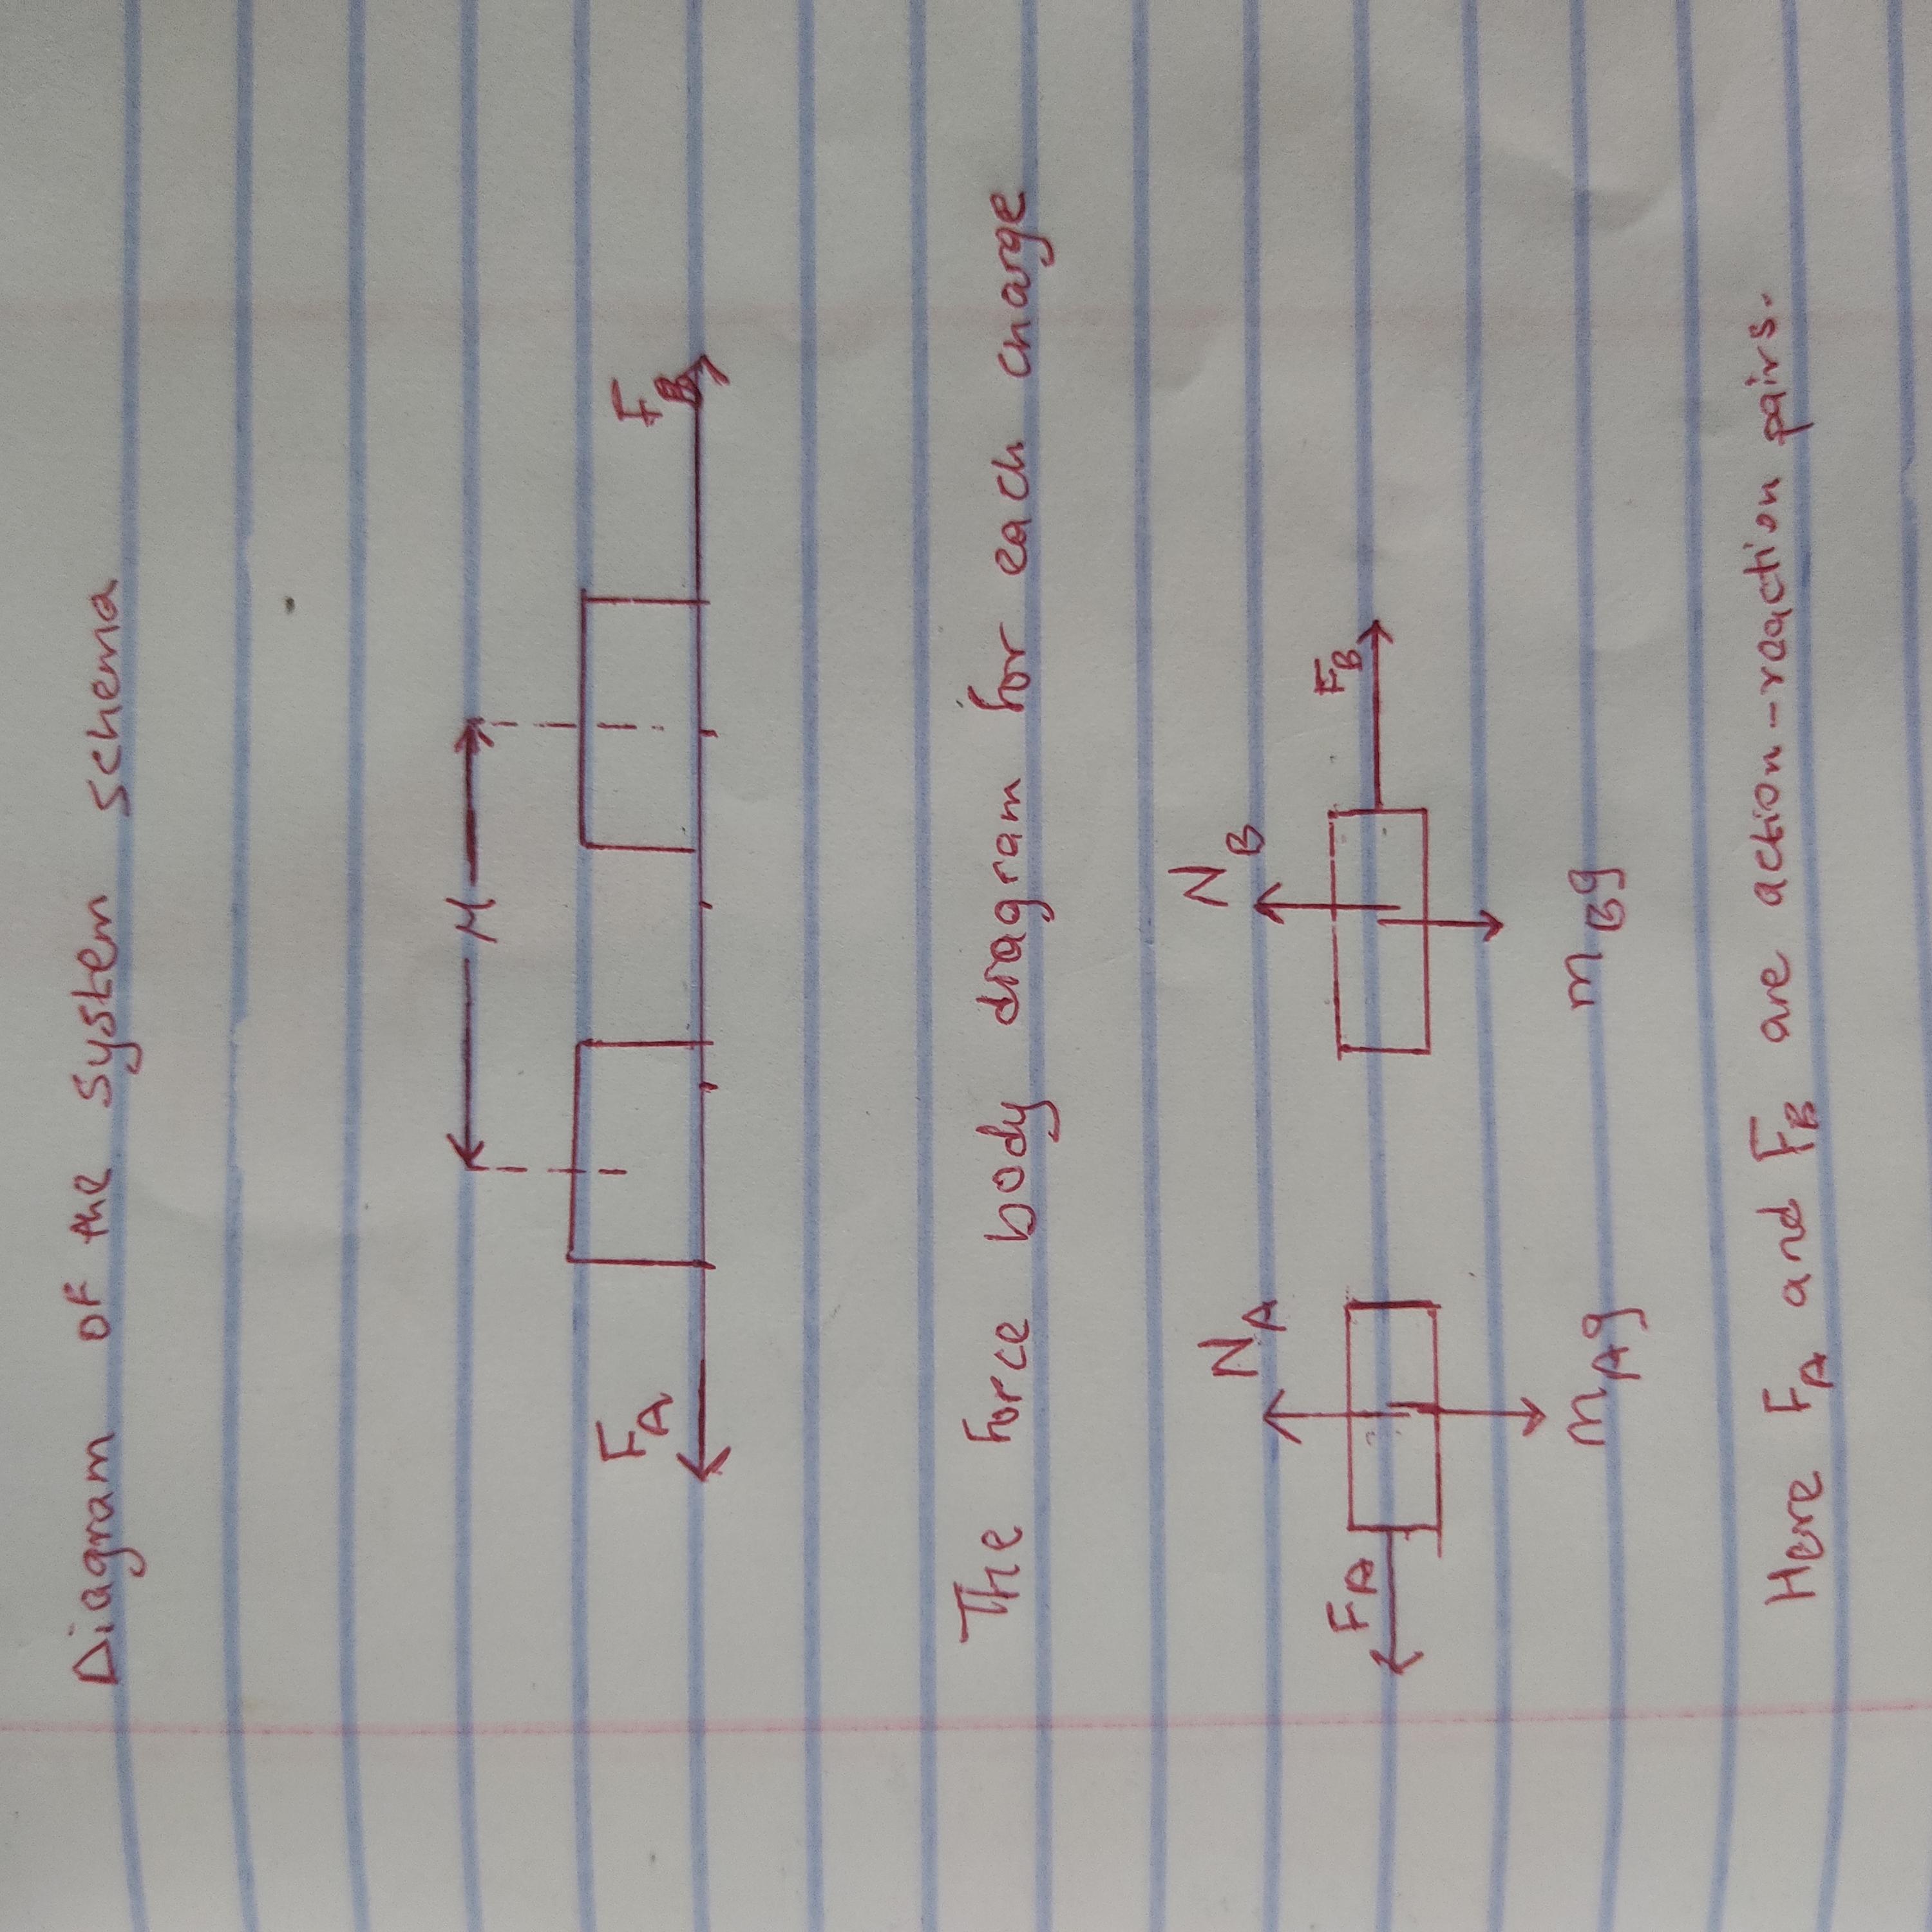 Diagram of the system schema
r
F_A F_B
The Force body diagram for each charge
N_A N_B
F_A F_B
m_Ag m_Bg
Here F_A and F_B are action-reaction pairs.